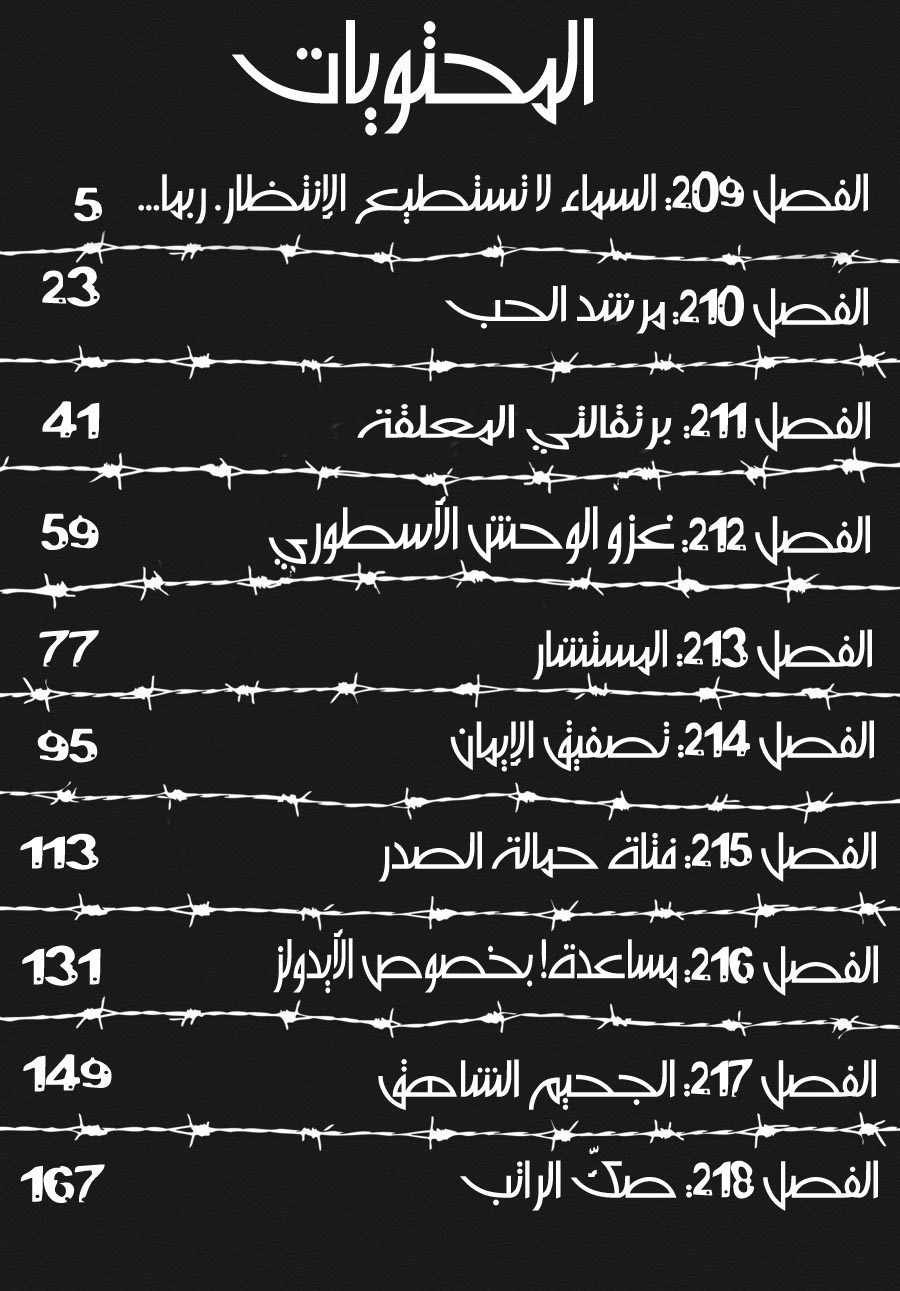 المحتويات
الفصل 209: السماء لا تستطيع الإنتظار. ربما... 5
الفصل 210: مرشد الحب 23
الفصل 211: برتقالتي المعلقة 41
الفصل 212: غزو الوحش الأسطوري 59
الفصل 213: المستشار 77
الفصل 214: تصفيق الإيمان 95
الفصل 215: فتاة حمالة الصدر 113
الفصل 216: مساعدة! بخصوص الأيدولز 131
الفصل 217: الجحيم الشاهق 149
الفصل 218: صكّ الراتب 167